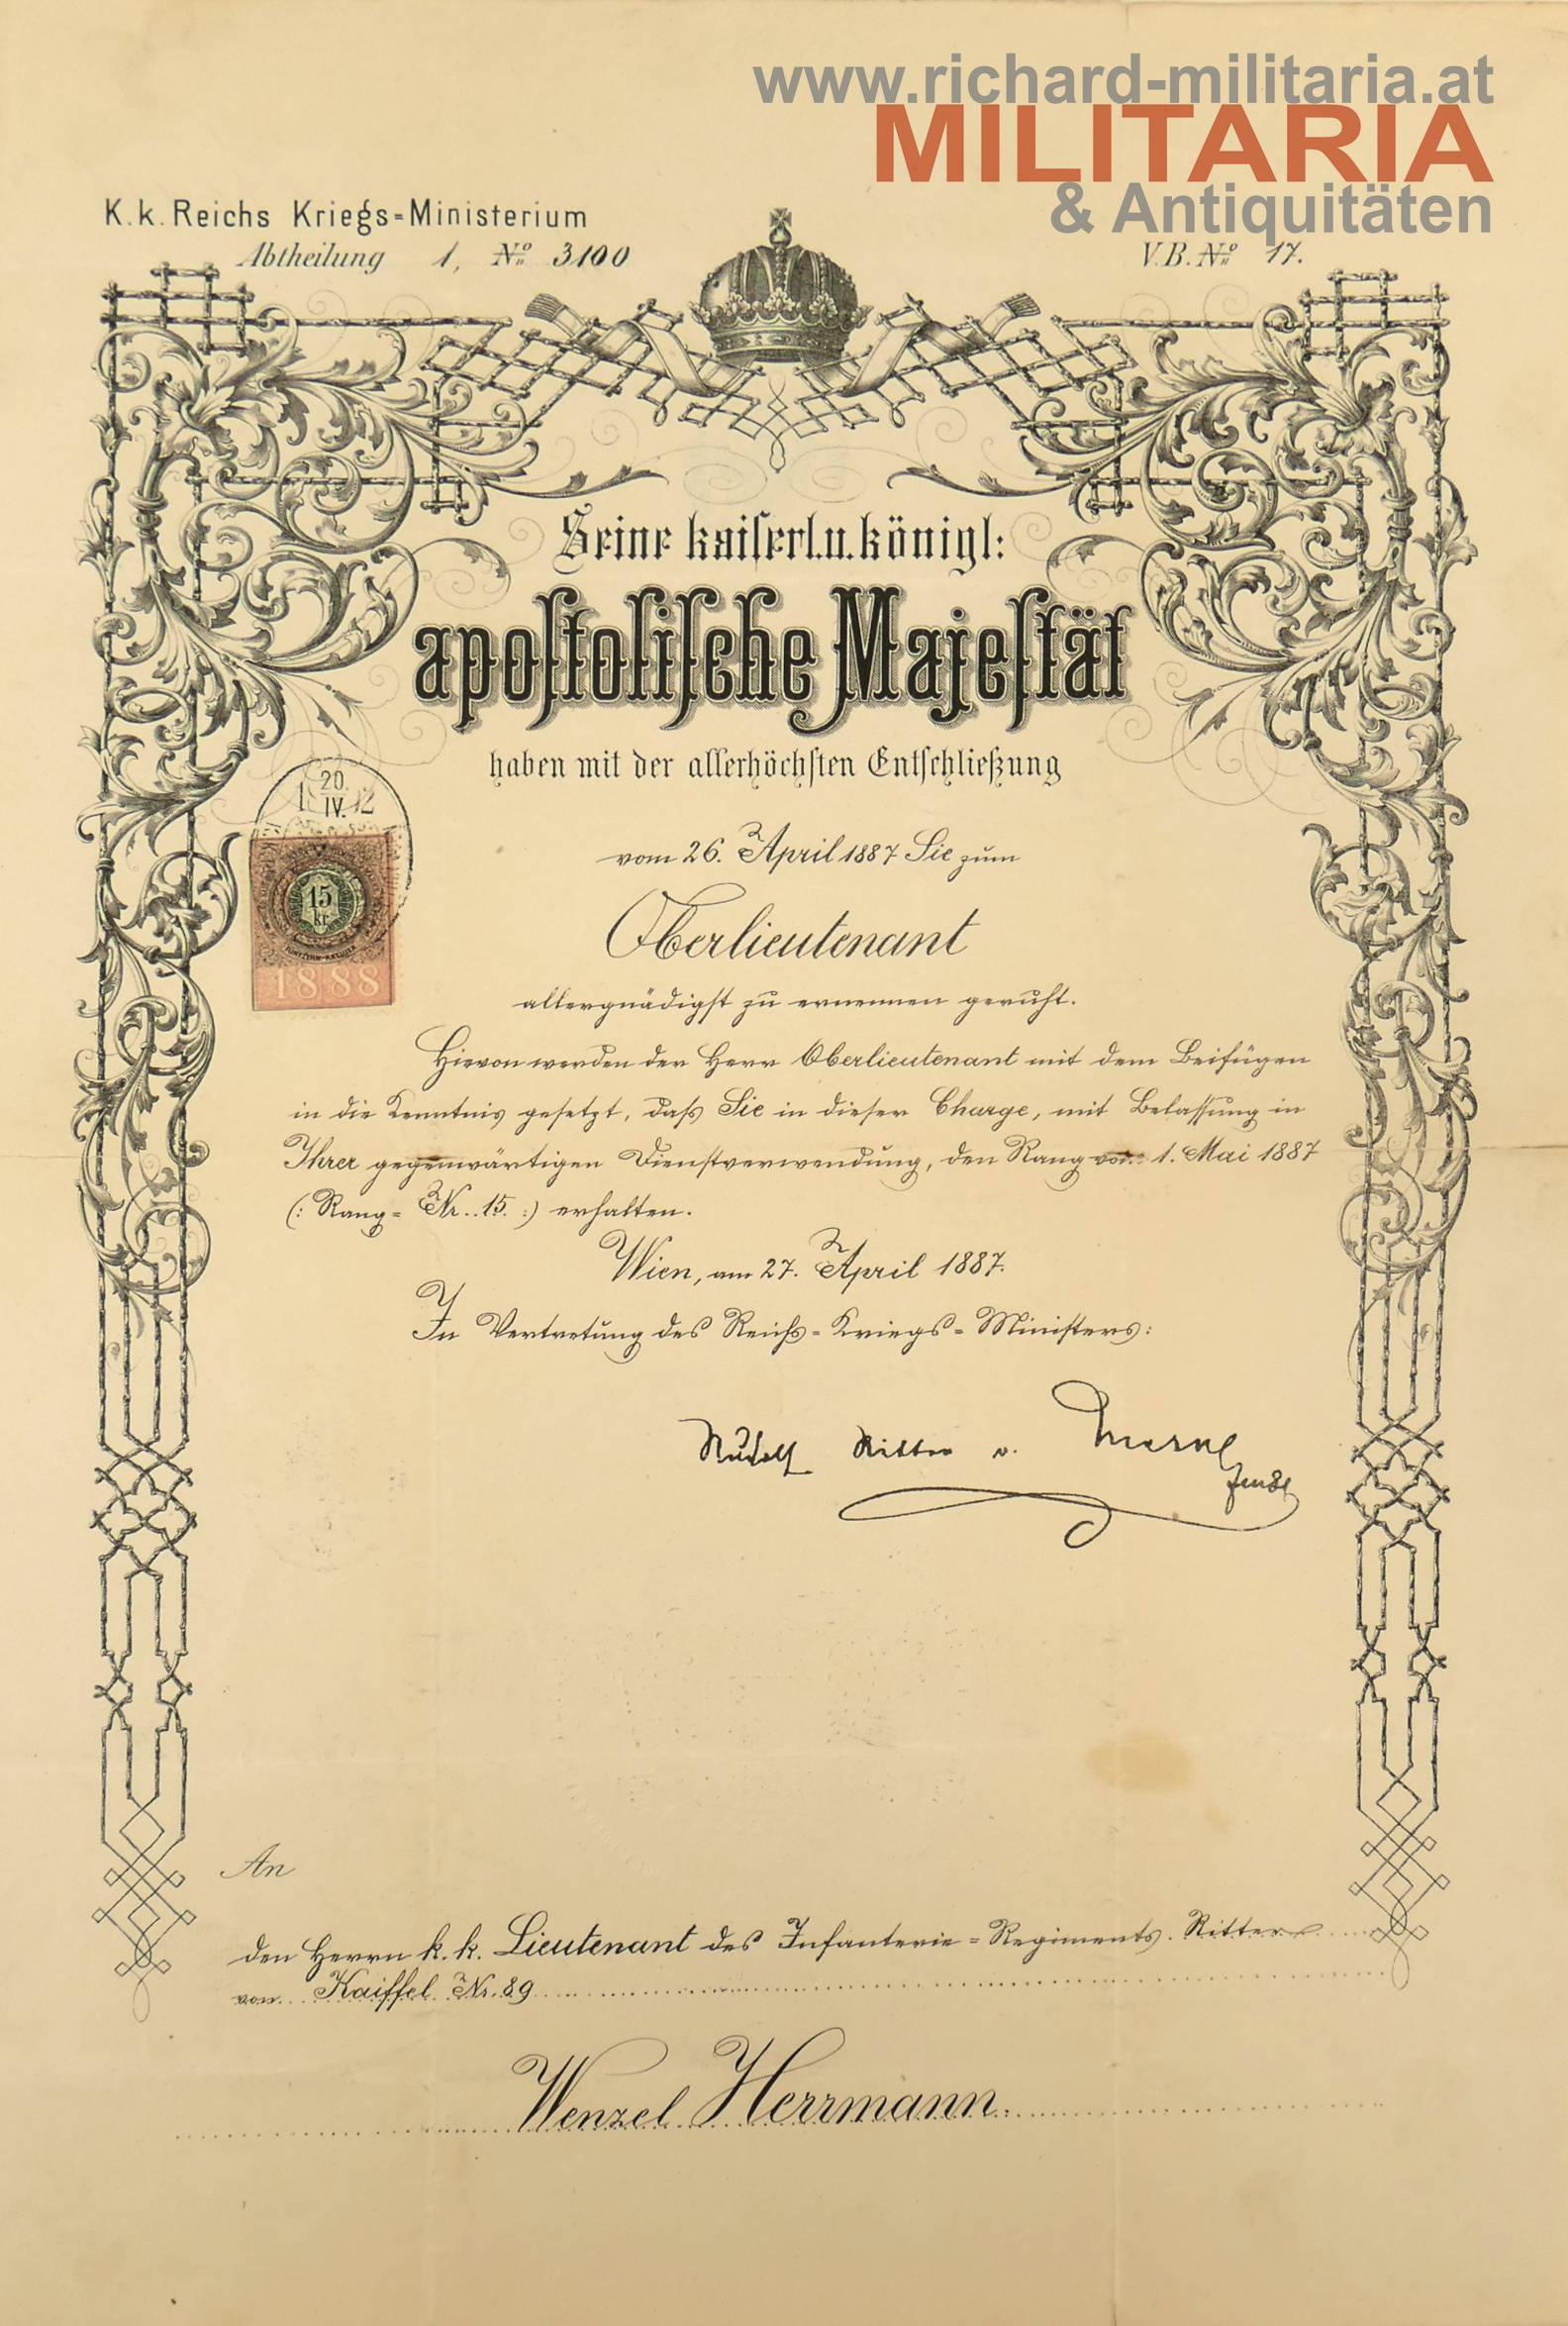 www.richard-militaria.at
MILITARIA
& Antiquitäten
K.k. Reichs Kriegs=Ministerium
Abtheilung 1, No 3100
V.B. No 17.
Seine kaiserl. u. königl:
apostolische Majestät
haben mit der allerhöchsten Entschließung
20.
IV. 12
15
kr.
1888
vom 26. April 1887 Sie zum
Oberlieutenant
allergnädigst zu ernennen geruht.
Hievon werden der Herr Oberlieutenant mit dem Beifügen
in die Kenntnis gesetzt, daß Sie in dieser Charge, mit Belassung in
Ihrer gegenwärtigen Dienstverwendung, den Rang vom 1. Mai 1887
(: Rang= Nr. 15. :) erhalten.
Wien, am 27. April 1887.
In Vertretung des Reichs=Kriegs=Ministers:
Rudolf Ritter v.
An
den Herrn k. k. Lieutenant des Infanterie=Regiments Ritter
von Kaiffel Nr. 89
Wenzel Herrmann.